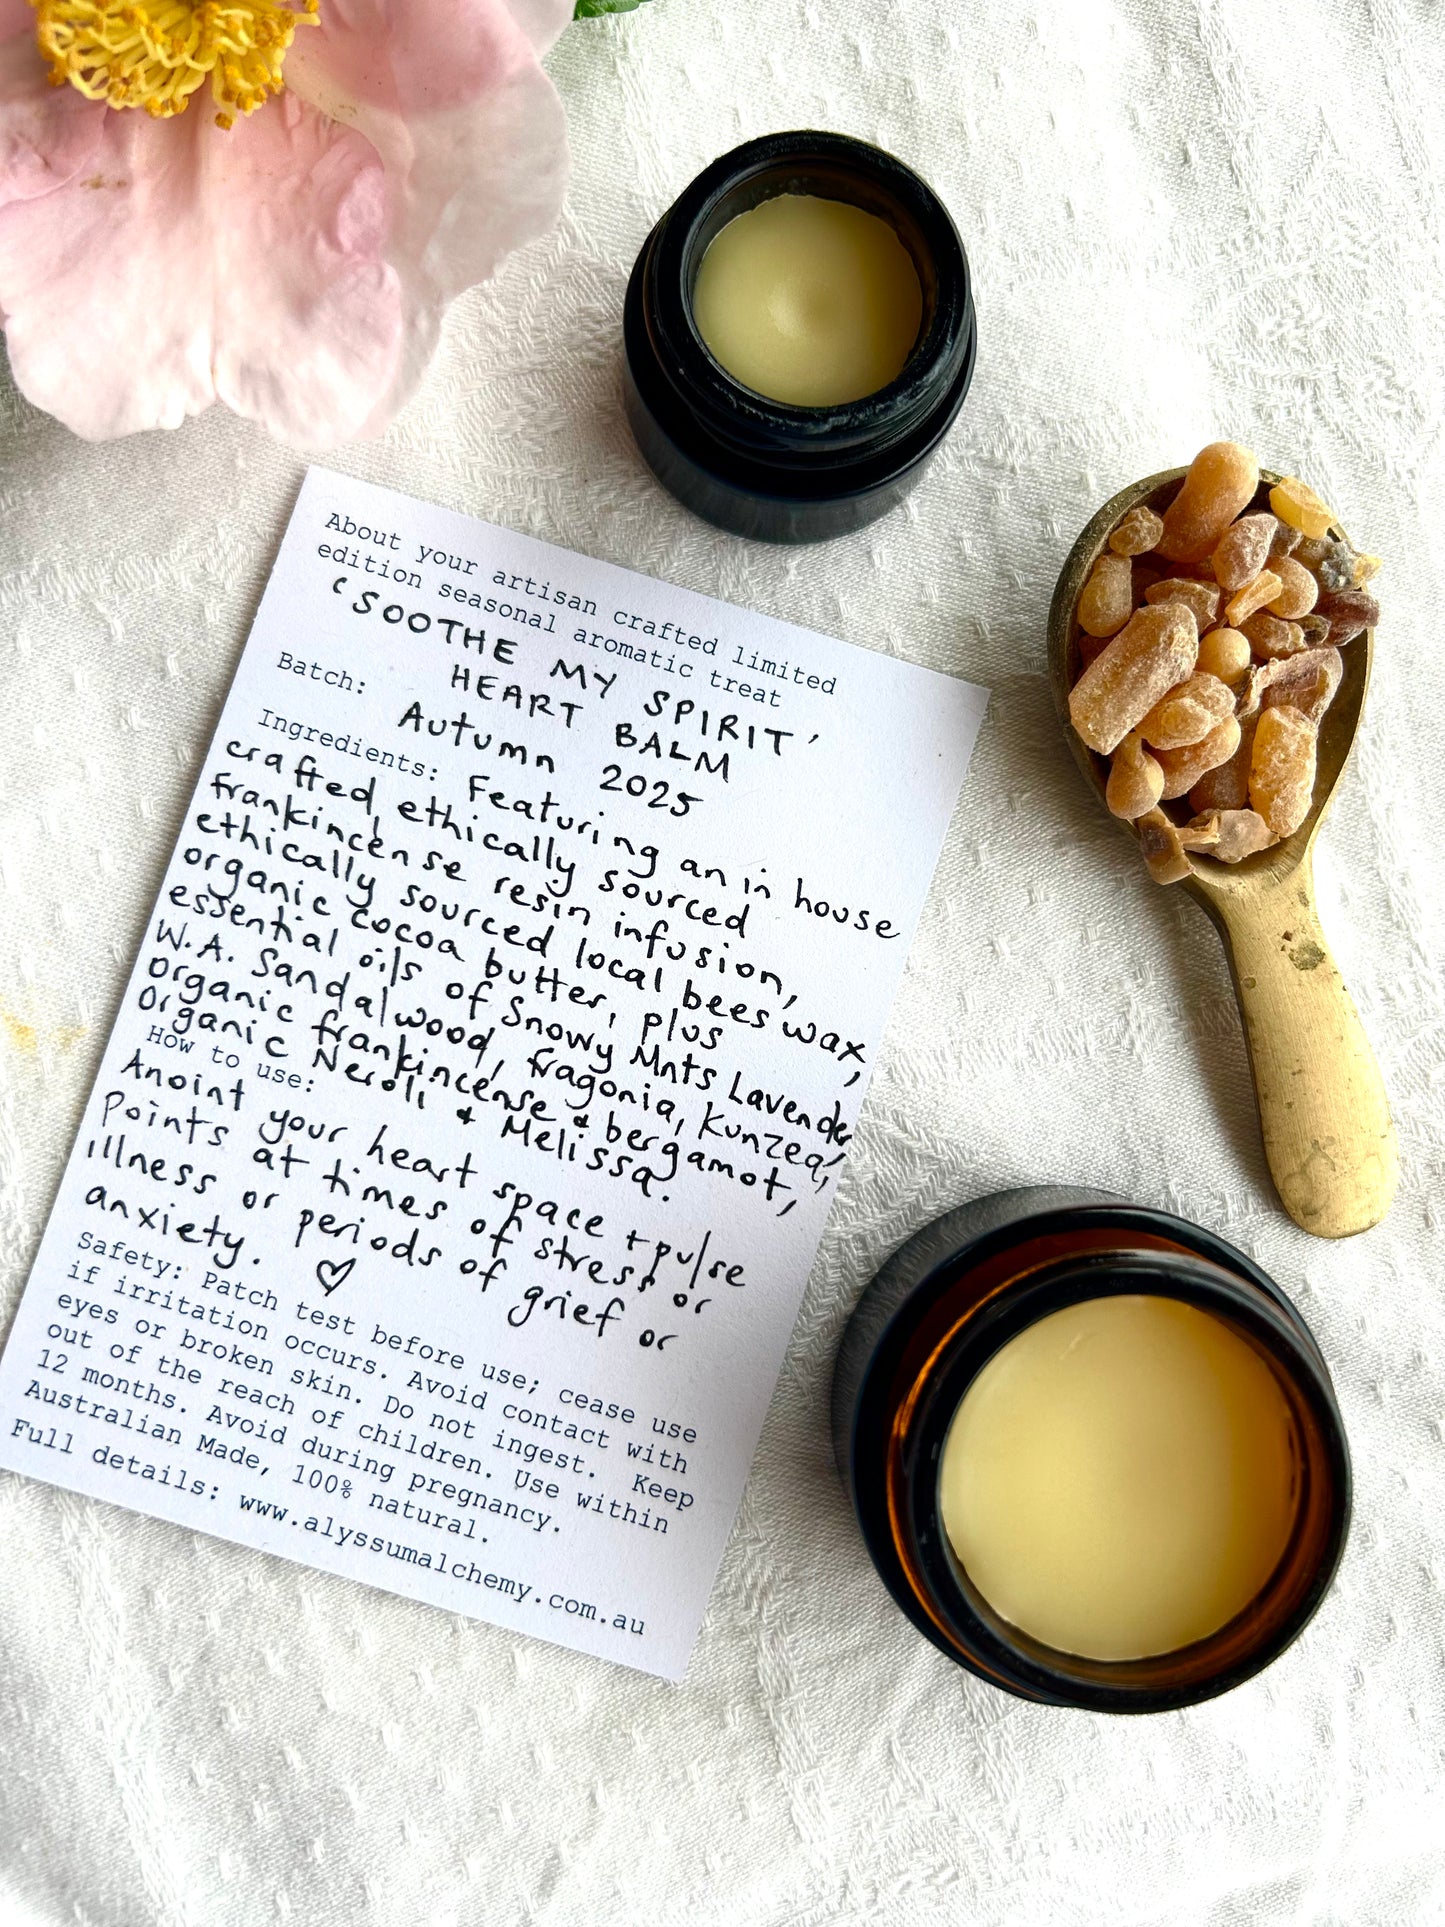 About your artisan crafted limited
edition seasonal aromatic treat
'SOOTHE MY SPIRIT'
HEART BALM
Batch: Autumn 2025
Ingredients: Featuring an in house
crafted, ethically sourced
frankincense resin infusion,
ethically sourced local bees wax,
organic cocoa butter, plus
essential oils of Snowy Mnts Lavender,
W.A. Sandalwood, fragonia, Kunzea,
organic frankincense & bergamot,
organic Neroli & Melissa.
How to use:
Anoint your heart space + pulse
points at times of stress or
illness or periods of grief or
anxiety. ♡
Safety: Patch test before use; cease use
if irritation occurs. Avoid contact with
eyes or broken skin. Do not ingest. Keep
out of the reach of children. Use within
12 months. Avoid during pregnancy.
Australian Made, 100% natural.
Full details: www.alyssumalchemy.com.au